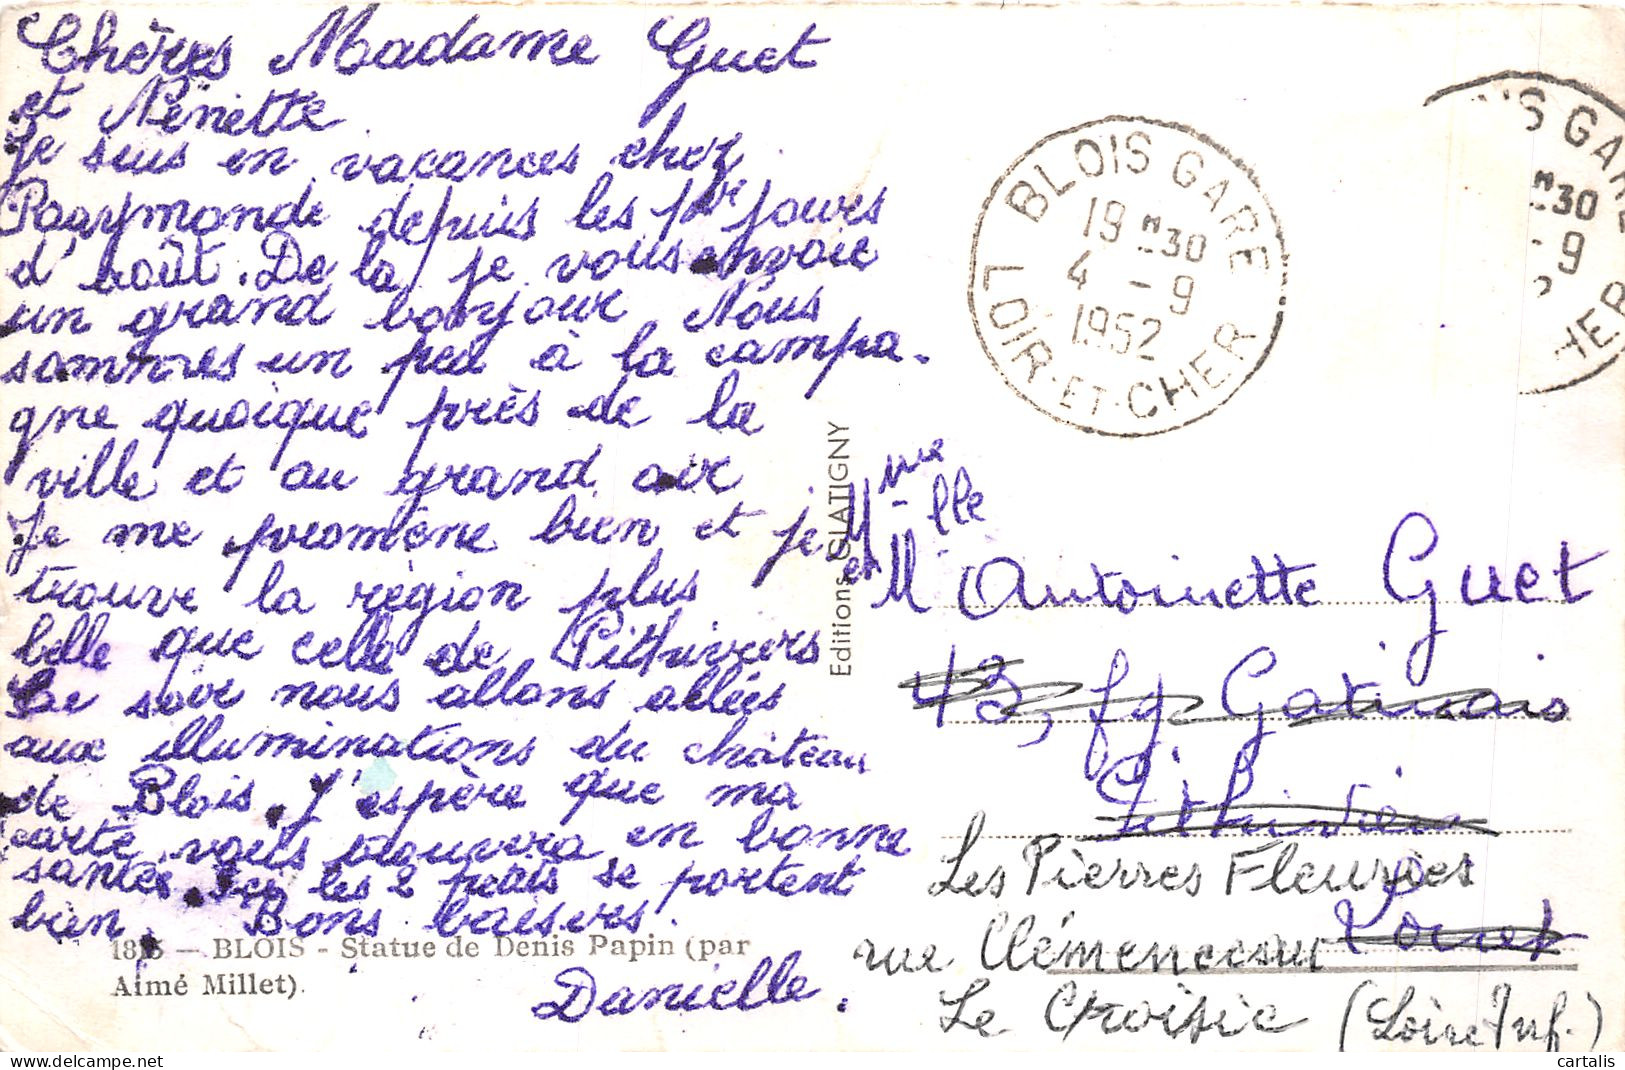 Chères Madame Guet
et Nénette
Je suis en vacances chez
Raaymonde depuis les 1er jours
d'août. De la je vous envoie
un grand bonjour Nous
sommes un peu à la campa-
gne quoique près de la
ville et au grand air
Je me promène bien et je
trouve la région plus
belle que celle de Pithiviers
Le soir nous allons allées
aux illuminations du château
de Blois. J'espère que ma
carte vous trouvera en bonne
santés. Ici les 2 petits se portent
bien. Bons baisers.
Danielle.
1815 — BLOIS - Statue de Denis Papin (par
Aimé Millet).
Editions SLATIGNY
BLOIS GARE
19 H 30
4 - 9
1952
LOIR-ET-CHER
IS GARE
H30
- 9
2
HER
Mme
et Mlle Antoinette Guet
43, fg Gatinais
Pithiviers
Loiret
Les Pierres Fleuries
rue Clémenceau
Le Croisic (Loire Inf.)
cartalis